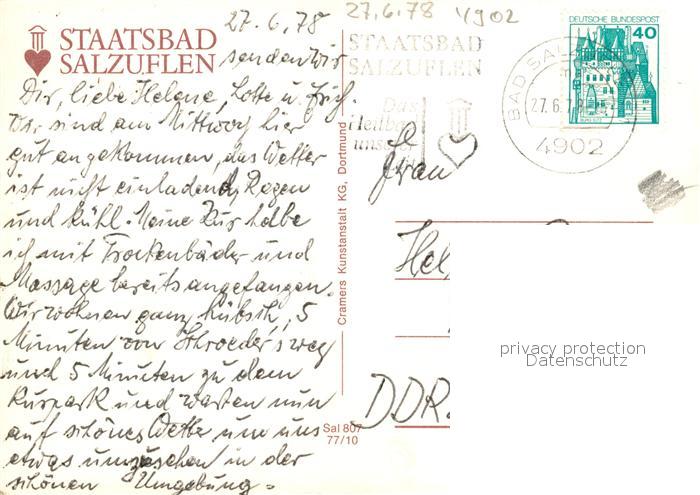 27.6.78
STAATSBAD
SALZUFLEN
senden wir
Dir, liebe Helene, Lotte u. Erich.
Wir sind am Mittwoch hier
gut angekommen, das Wetter
ist nicht einladend, Regen
und kühl. Meine Kur habe
ich mit Trockenbäder und
Massage bereits angefangen.
Wir wohnen ganz hübsch, 5
Minuten von Schroeder's weg
und 5 Minuten zu dem
Kurpark und warten nun
auf schönes Wetter um uns
etwas umzusehen in der
schönen Umgebung =
Cramers Kunstanstalt KG, Dortmund
Sal 807
77/10
27.6.78 4902
STAATSBAD
SALZUFLEN
Das
Heilbad
unserer
Zeit
BAD SALZUFLEN
27.6.78
4902
DEUTSCHE BUNDESPOST
40
Frau
Hel
DDR.
privacy protection
Datenschutz